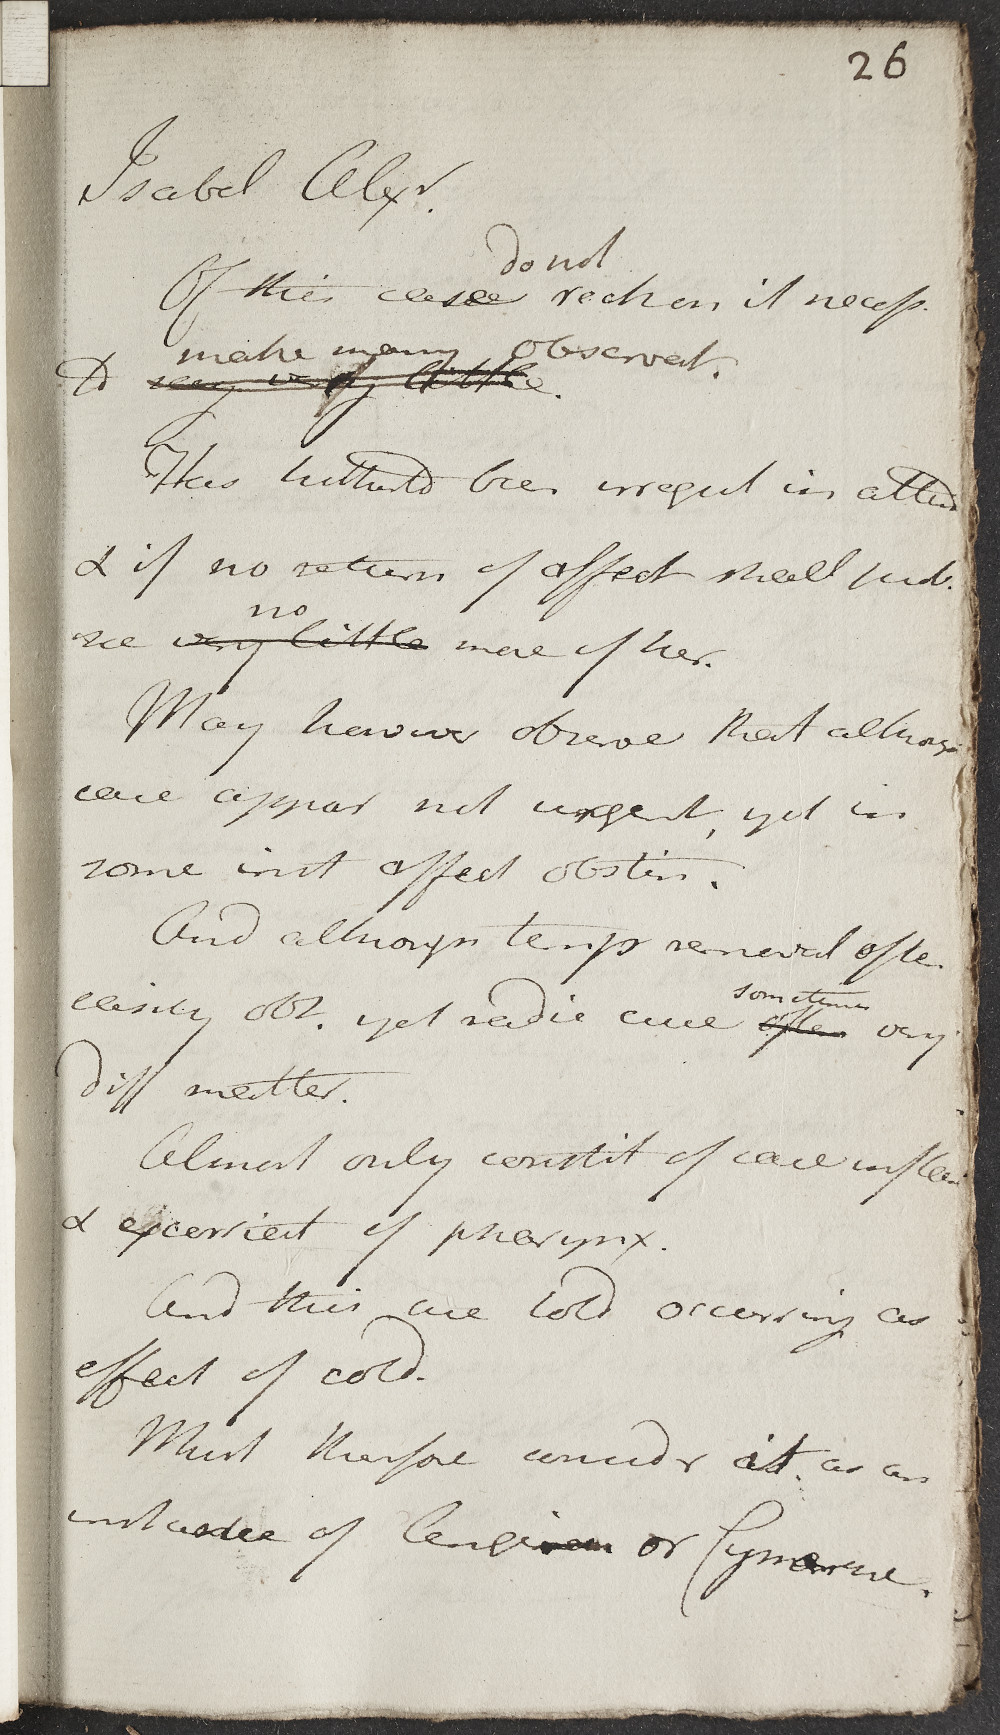 26
Isabel Alexr.
do not
Of this case reckon it necess.
make many observat.
to say very little.
Has hitherto been irregul in attend
& if no return of affect shall prob.
no
see very little more of her.
May however observe that although
case appear not urgent, yet in
some inst affect obstin.
And although temp removal often
easily obt. yet radic cure sometimes often very
diff matter.
Almost only constit of case inflam
& excoriat of pharynx.
And this are told occurring as
effect of cold.
Must therefore consider it as an
instance of Angina or Cynanche.